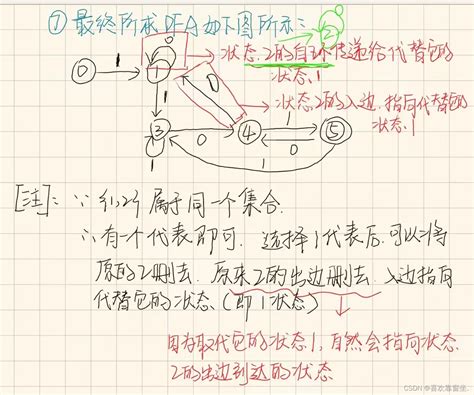 ⑦ 最终所求DFA如下图所示:
0
②
0 1 1
状态2的自环传递给代替它的状态1
0
状态2的入边,指向代替它的状态1
1
③ 0 ④ 1 ⑤
0
1
1
[注]: ∵ {1,2} 属于同一个集合.
∴ 有一个代表即可. 选择1代表后,可以将
原的2删去. 原来2的出边删去. 入边指向
代替它的状态.(即1状态)
因为取代它的状态1,自然会指向状态
2的出边到达的状态
CSDN @喜欢靠窗坐.